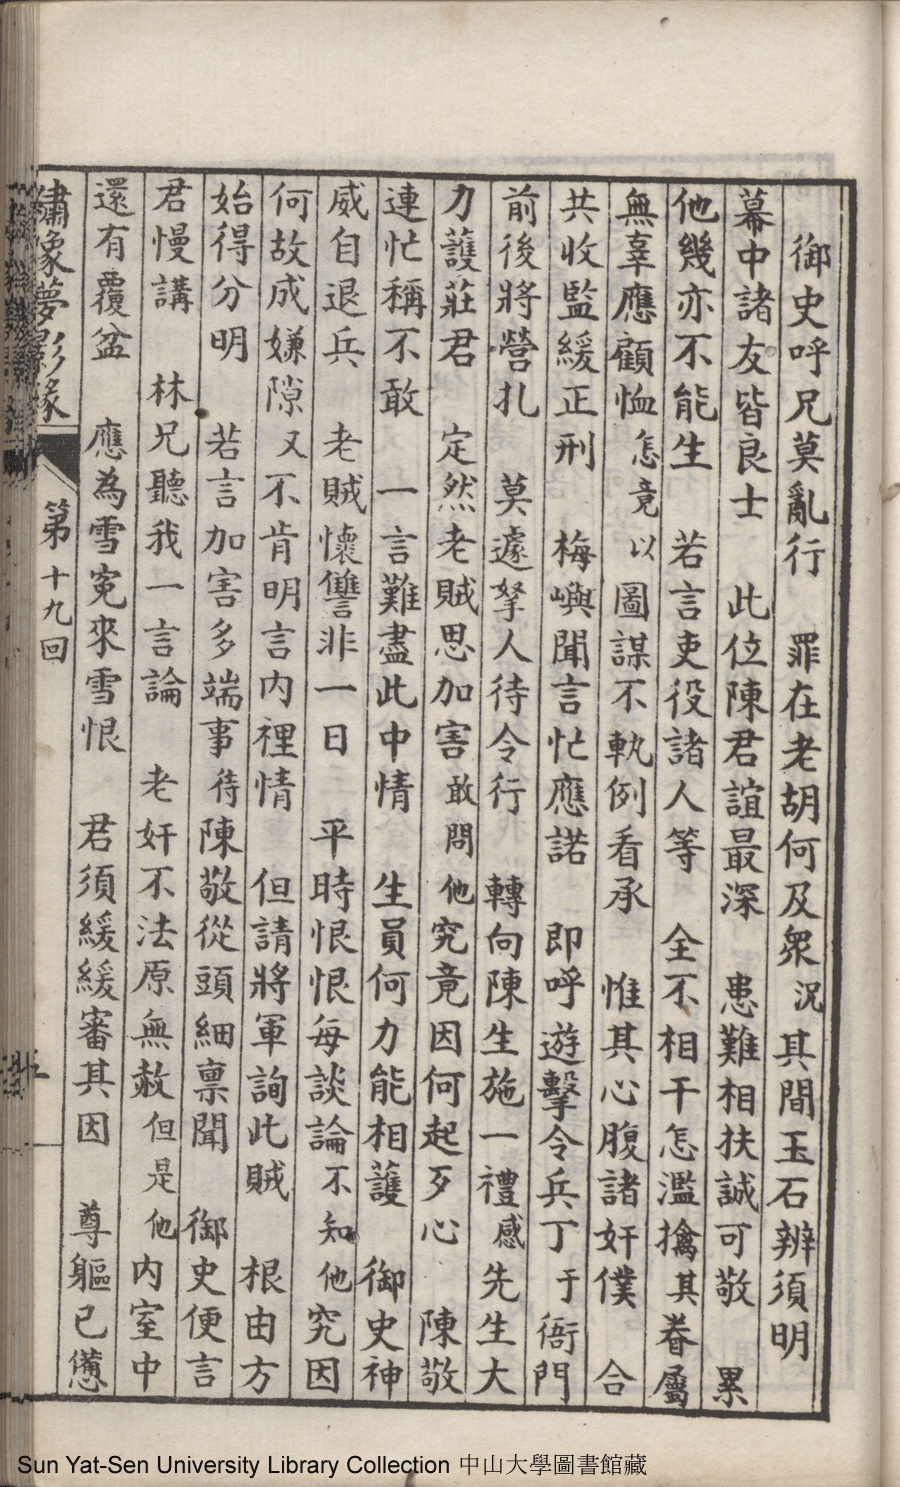 御史呼兄莫亂行　罪在老胡何及衆況其間玉石辨須明
幕中諸友皆良士　此位陳君誼最深　患難相扶誠可敬　累
他幾亦不能生　若言吏役諸人等　全不相干怎濫擒其眷屬
無辜應顧恤怎竟以圖謀不軌例看承　惟其心腹諸奸僕　合
共收監緩正刑　梅嶼聞言忙應諾　即呼遊擊令兵丁于衙門
前後將營扎　莫遽拏人待令行　轉向陳生施一禮感先生大
力護莊君　定然老賊思加害敢問他究竟因何起歹心　陳敬
連忙稱不敢　一言難盡此中情　生員何力能相護　御史神
威自退兵　老賊懷讐非一日　平時恨恨每談論不知他究因
何故成嫌隙又不肯明言內裡情　但請將軍詢此賊　根由方
始得分明　若言加害多端事待陳敬從頭細禀聞　御史便言
君慢講　林兄聽我一言論　老奸不法原無赦但是他內室中
還有覆盆　應為雪寃來雪恨　君須緩緩審其因　尊軀已憊
繡像夢影緣　第十九回